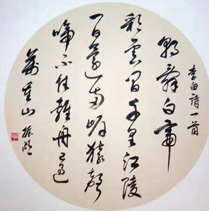 李白诗一首
朝辞白帝
彩云间千里江陵
一日还两岸猿声
啼不住轻舟已过
万重山